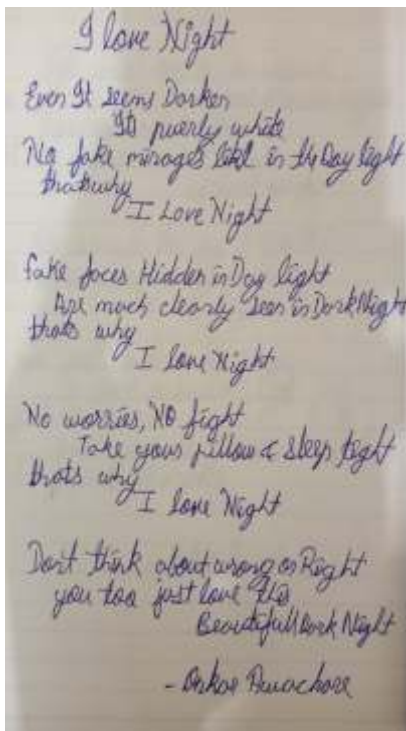 I love Night
Even It seems Darker
Its puerly white
No fake mirages like in the Day light
thats why
I Love Night
fake faces Hidden in Day light
Are much clearly seen in Dark Night
thats why
I love Night
No worries, No fight
Take your pillow & sleep tight
thats why
I love Night
Don't think about wrong or Right
you too just love this
Beautifull Dark Night
- Onkar